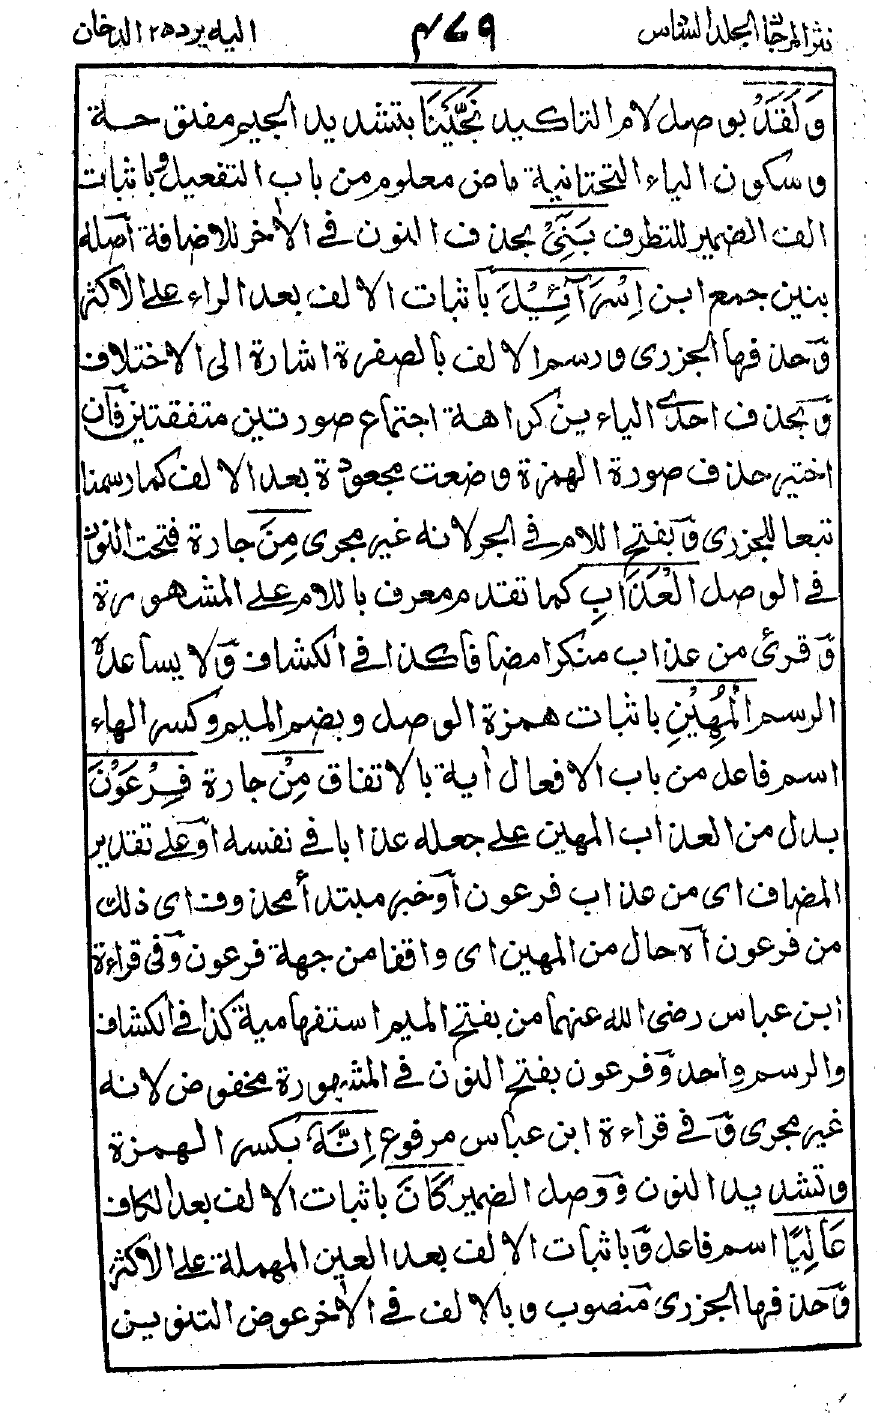 نثر المرجان الجلد السادس ٤٧٩ اليه يرد ٢٥ الدخان
وَلَقَدْ بوصل لام التاكيد نَجَّيْنَا بتشديد الجيم مفتوحة
وسكون الياء التحتانية ماض معلوم من باب التفعيل وباثبات
الف الضمير للتطرف بَنِيْ بحذف النون في الاٰخر للاضافة اصله
بنين جمع ابن اِسْرَآئِيْلَ باثبات الالف بعد الراء على الاكثر
وحذفها الجزرى ورسم الالف بالصفرة اشارة الى الاختلاف
وبحذف احدى الياءين كراهة اجتماع صورتين متفقتين فان
اختير حذف صورة الهمزة وضعت مجعودة بعد الالف كما رسمنا
تبعا للجزرى وبفتح اللام في الجر لانه غير مجرى مِنَ جارة فتحت النون
في الوصل الْعَذَابِ كما تقدم معرف باللام على المشهورة
وقرئ من عذاب منكرا مضافا كذا في الكشاف ولا يساعده
الرسم الْمُهِيْنِ باثبات همزة الوصل وبضم الميم وكسر الهاء
اسم فاعل من باب الافعال أية بالاتفاق مِنْ جارة فِرْعَوْنَ
بدل من العذاب المهين على جعله عذابا في نفسه او على تقدير
المضاف اى من عذاب فرعون أو خبر مبتدأ محذوف اى ذلك
من فرعون او حال من المهين اى واقعا من جهة فرعون وفي قراءة
ابن عباس رضى الله عنهما من بفتح الميم استفهامية كذا في الكشاف
والرسم واحد وفرعون بفتح النون في المشهورة مخفوض لانه
غير مجرى وفي قراءة ابن عباس مرفوع اِنَّهٗ بكسر الهمزة
وتشديد النون ووصل الضمير كَانَ باثبات الالف بعد الكاف
عَالِيًا اسم فاعل وباثبات الالف بعد العين المهملة على الاكثر
وحذفها الجزرى منصوب وبالالف في الاٰخر عوض التنوين